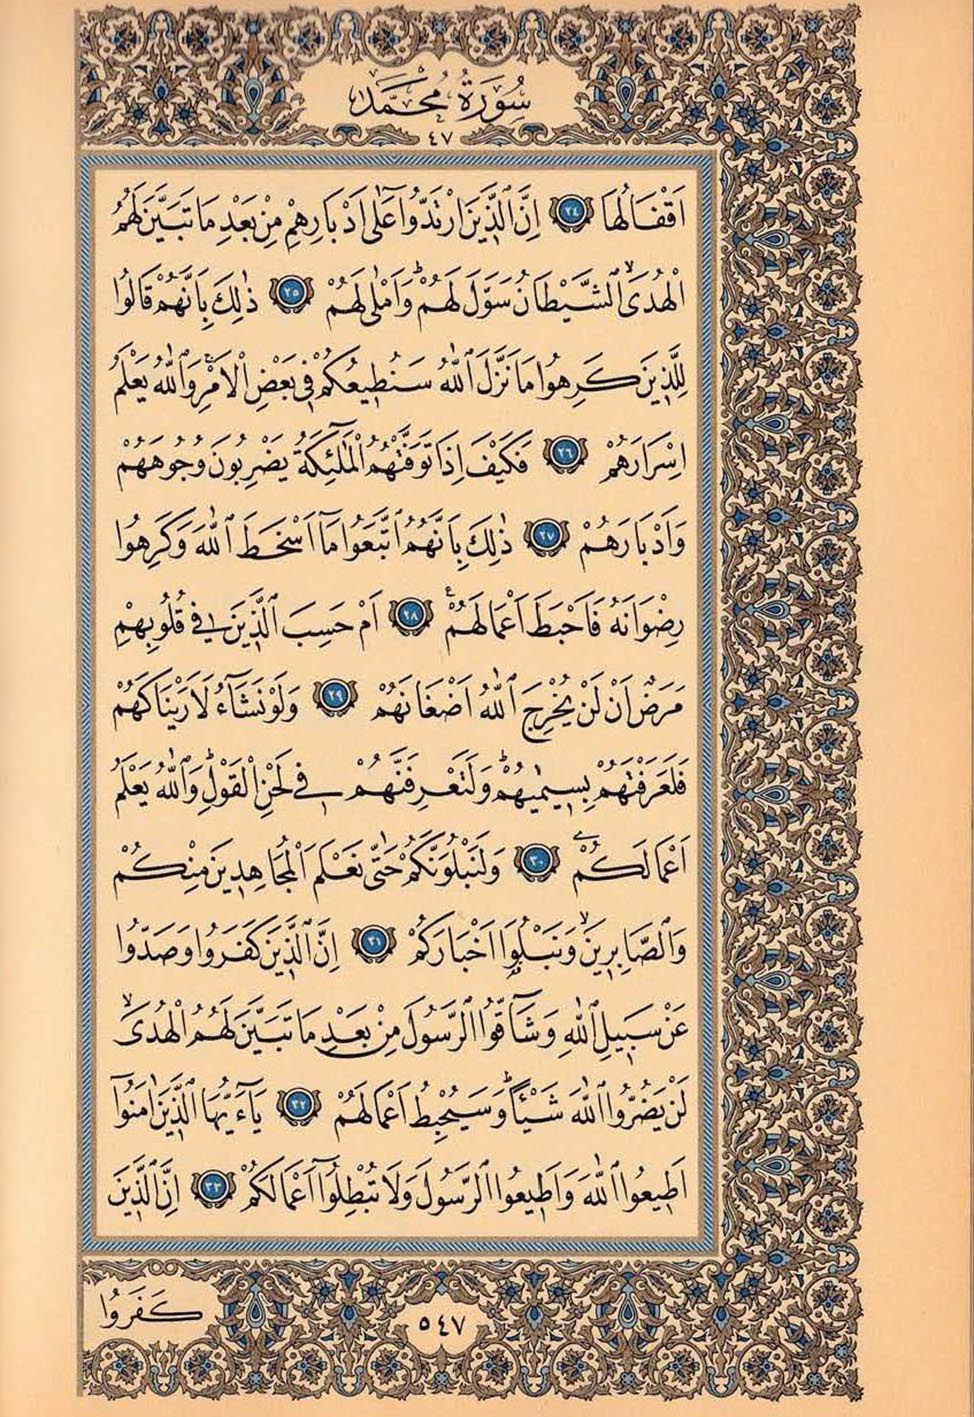 سُورَةُ مُحَمَّدٍ
٤٧
اَقْفَالُهَا ﴿٢٤﴾ اِنَّ الَّذ۪ينَ ارْتَدُّوا عَلٰٓى اَدْبَارِهِمْ مِنْ بَعْدِ مَا تَبَيَّنَ لَهُمُ
الْهُدَىۙ الشَّيْطَانُ سَوَّلَ لَهُمْۜ وَاَمْلٰى لَهُمْ ﴿٢٥﴾ ذٰلِكَ بِاَنَّهُمْ قَالُوا
لِلَّذ۪ينَ كَرِهُوا مَا نَزَّلَ اللّٰهُ سَنُط۪يعُكُمْ ف۪ي بَعْضِ الْاَمْرِۚ وَاللّٰهُ يَعْلَمُ
اِسْرَارَهُمْ ﴿٢٦﴾ فَكَيْفَ اِذَا تَوَفَّتْهُمُ الْمَلٰٓئِكَةُ يَضْرِبُونَ وُجُوهَهُمْ
وَاَدْبَارَهُمْ ﴿٢٧﴾ ذٰلِكَ بِاَنَّهُمُ اتَّبَعُوا مَٓا اَسْخَطَ اللّٰهَ وَكَرِهُوا
رِضْوَانَهُ فَاَحْبَطَ اَعْمَالَهُمْ۟ ﴿٢٨﴾ اَمْ حَسِبَ الَّذ۪ينَ ف۪ي قُلُوبِهِمْ
مَرَضٌ اَنْ لَنْ يُخْرِجَ اللّٰهُ اَضْغَانَهُمْ ﴿٢٩﴾ وَلَوْ نَشَٓاءُ لَاَرَيْنَاكَهُمْ
فَلَعَرَفْتَهُمْ بِس۪يمٰيهُمْۜ وَلَتَعْرِفَنَّهُمْ ف۪ي لَحْنِ الْقَوْلِۜ وَاللّٰهُ يَعْلَمُ
اَعْمَالَكُمْ ﴿٣٠﴾ وَلَنَبْلُوَنَّكُمْ حَتّٰى نَعْلَمَ الْمُجَاهِد۪ينَ مِنْكُمْ
وَالصَّابِر۪ينَۙ وَنَبْلُوَ۬ا اَخْبَارَكُمْ ﴿٣١﴾ اِنَّ الَّذ۪ينَ كَفَرُوا وَصَدُّوا
عَنْ سَب۪يلِ اللّٰهِ وَشَٓاقُّوا الرَّسُولَ مِنْ بَعْدِ مَا تَبَيَّنَ لَهُمُ الْهُدٰىۙ
لَنْ يَضُرُّوا اللّٰهَ شَيْـًٔاۜ وَسَيُحْبِطُ اَعْمَالَهُمْ ﴿٣٢﴾ يَٓا اَيُّهَا الَّذ۪ينَ اٰمَنُٓوا
اَط۪يعُوا اللّٰهَ وَاَط۪يعُوا الرَّسُولَ وَلَا تُبْطِلُٓوا اَعْمَالَكُمْ ﴿٣٣﴾ اِنَّ الَّذ۪ينَ
كَفَرُوا
٥٤٧